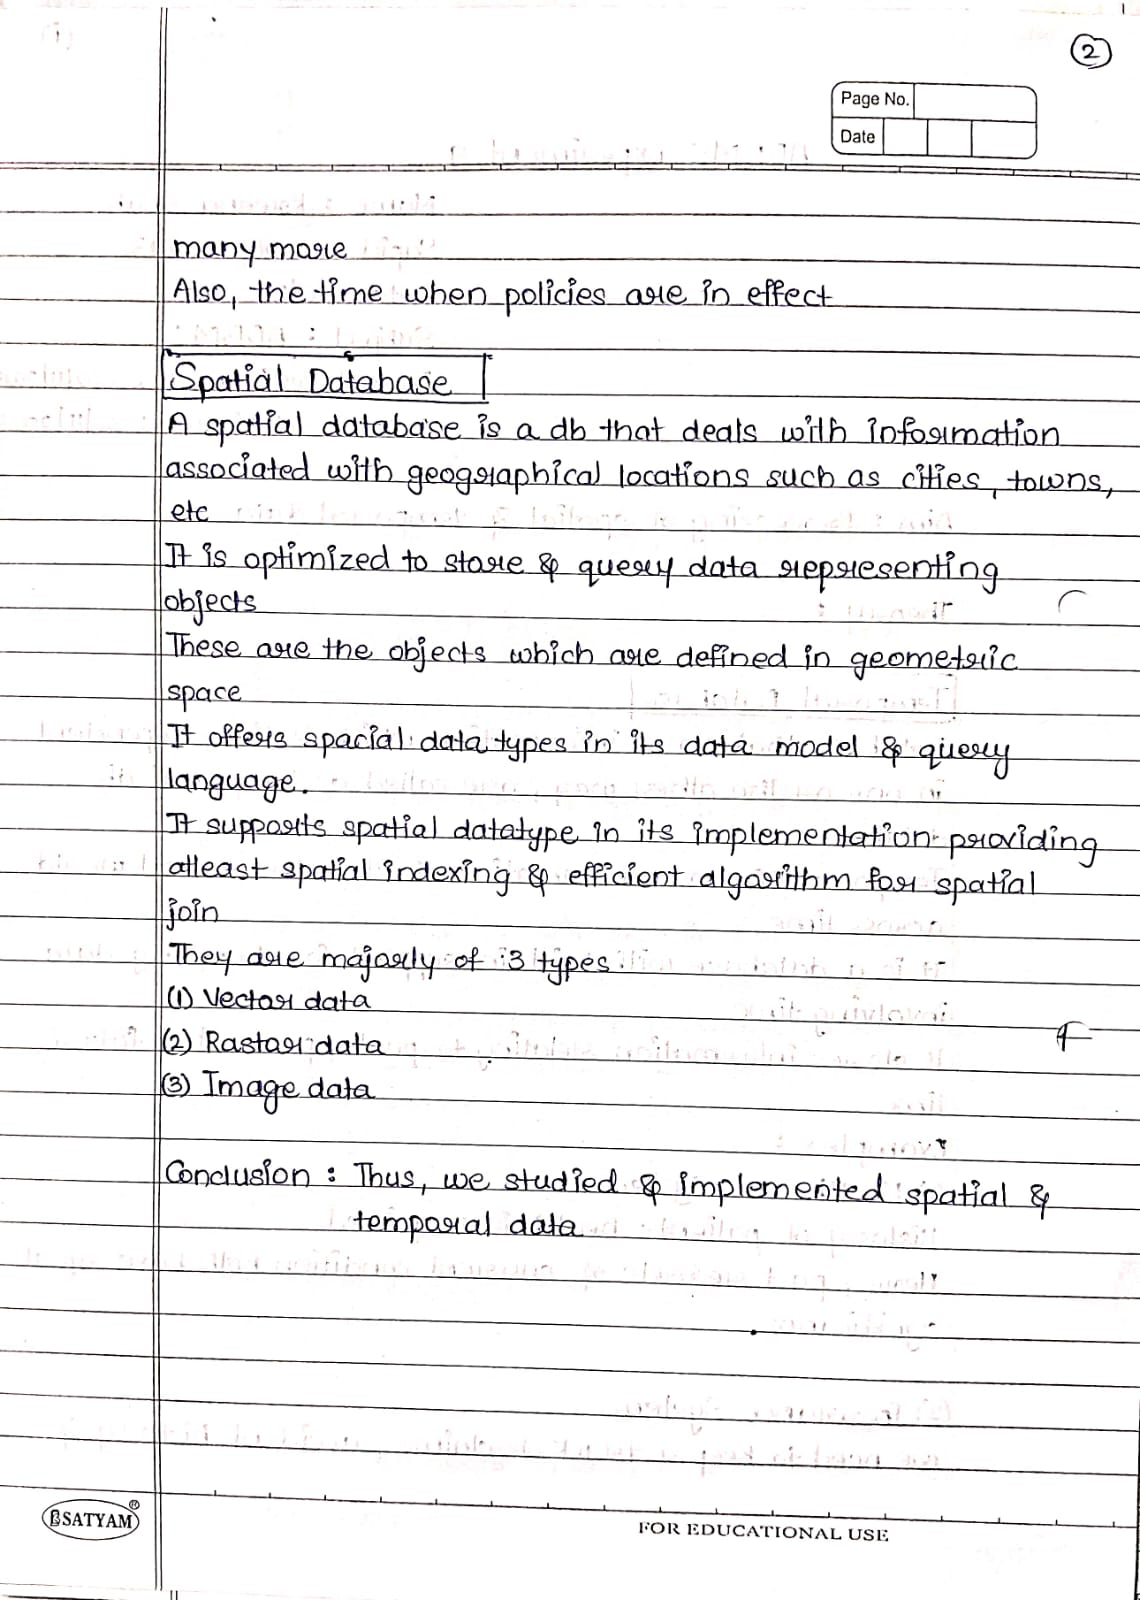 2
Page No.
Date
many more
Also, the time when policies are in effect
Spatial Database
A spatial database is a db that deals with information
associated with geographical locations such as cities, towns,
etc
It is optimized to store & query data representing
objects
These are the objects which are defined in geometric
space
It offers spacial data types in its data model & query
language.
It supports spatial datatype in its implementation providing
atleast spatial indexing & efficient algorithm for spatial
join
They are majorly of 3 types
(1) Vector data
(2) Rastor data
(3) Image data
Conclusion : Thus, we studied & implemented spatial &
temporal data
SATYAM®
FOR EDUCATIONAL USE